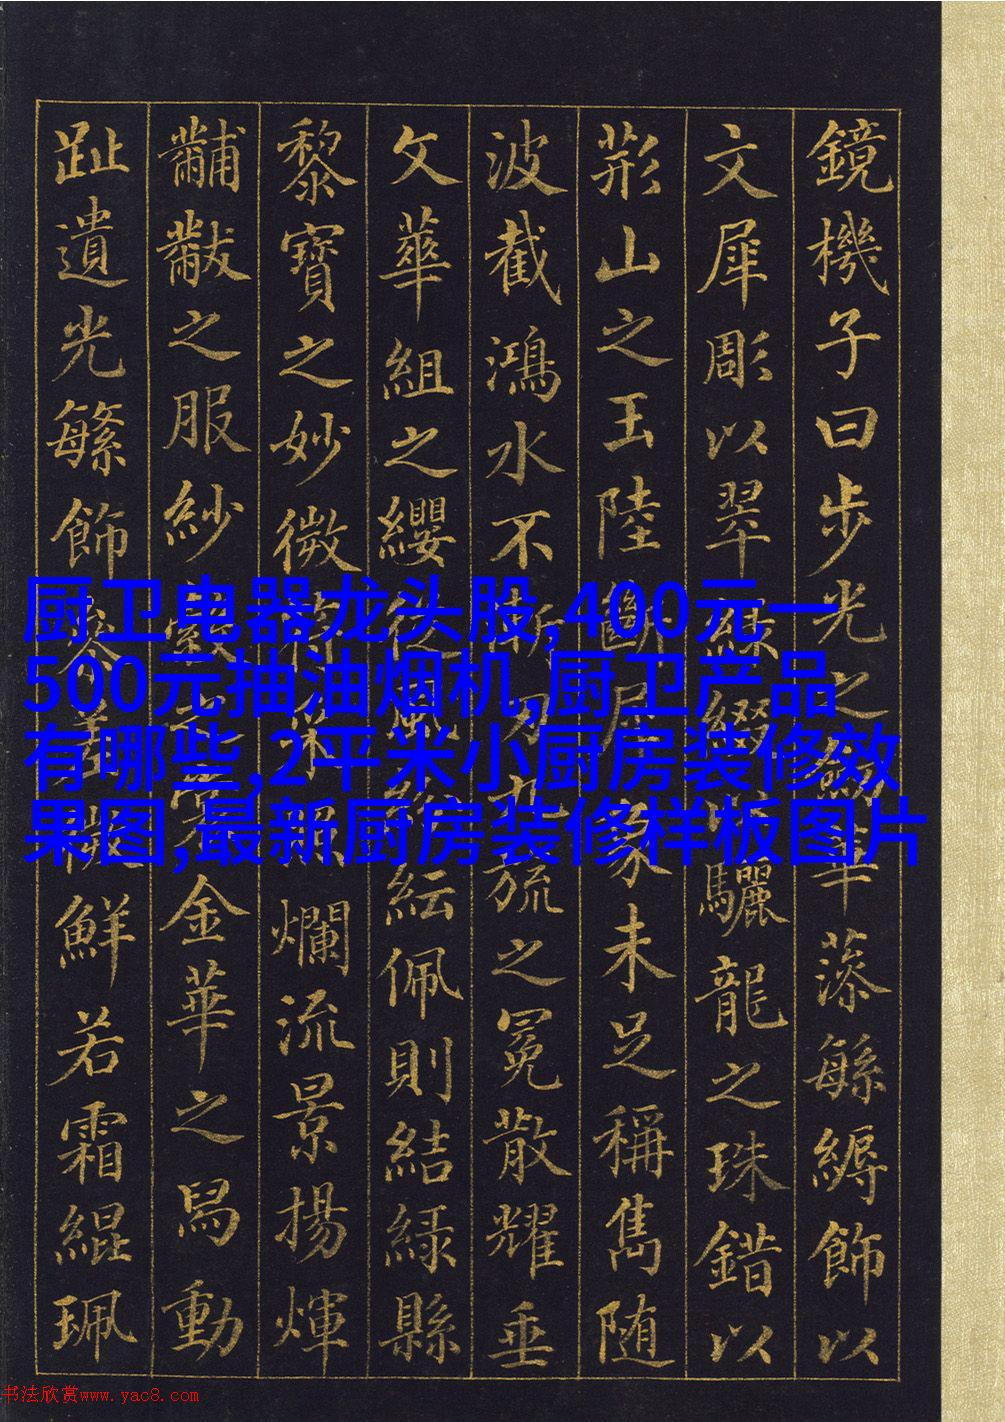 鏡機子曰步光之劒華藻緐縟飾以
文犀彫以翠綠綴以驪龍之珠錯以
荊山之玉陸斷犀象未足稱雋随
波截鴻水不漸刃九旒之冕散耀垂
文華組之纓從風紛紜佩則結緑縣
黎寶之妙微符采照爛流景揚煇
黼黻之服紗縠之裳金華之舄動
趾遺光繁飾參差微鮮若霜緄珮
厨卫电器龙头股,400元一
500元抽油烟机,厨卫产品
有哪些,2平米小厨房装修效
果图,最新厨房装修样板图片
书法欣赏www.yac8.com